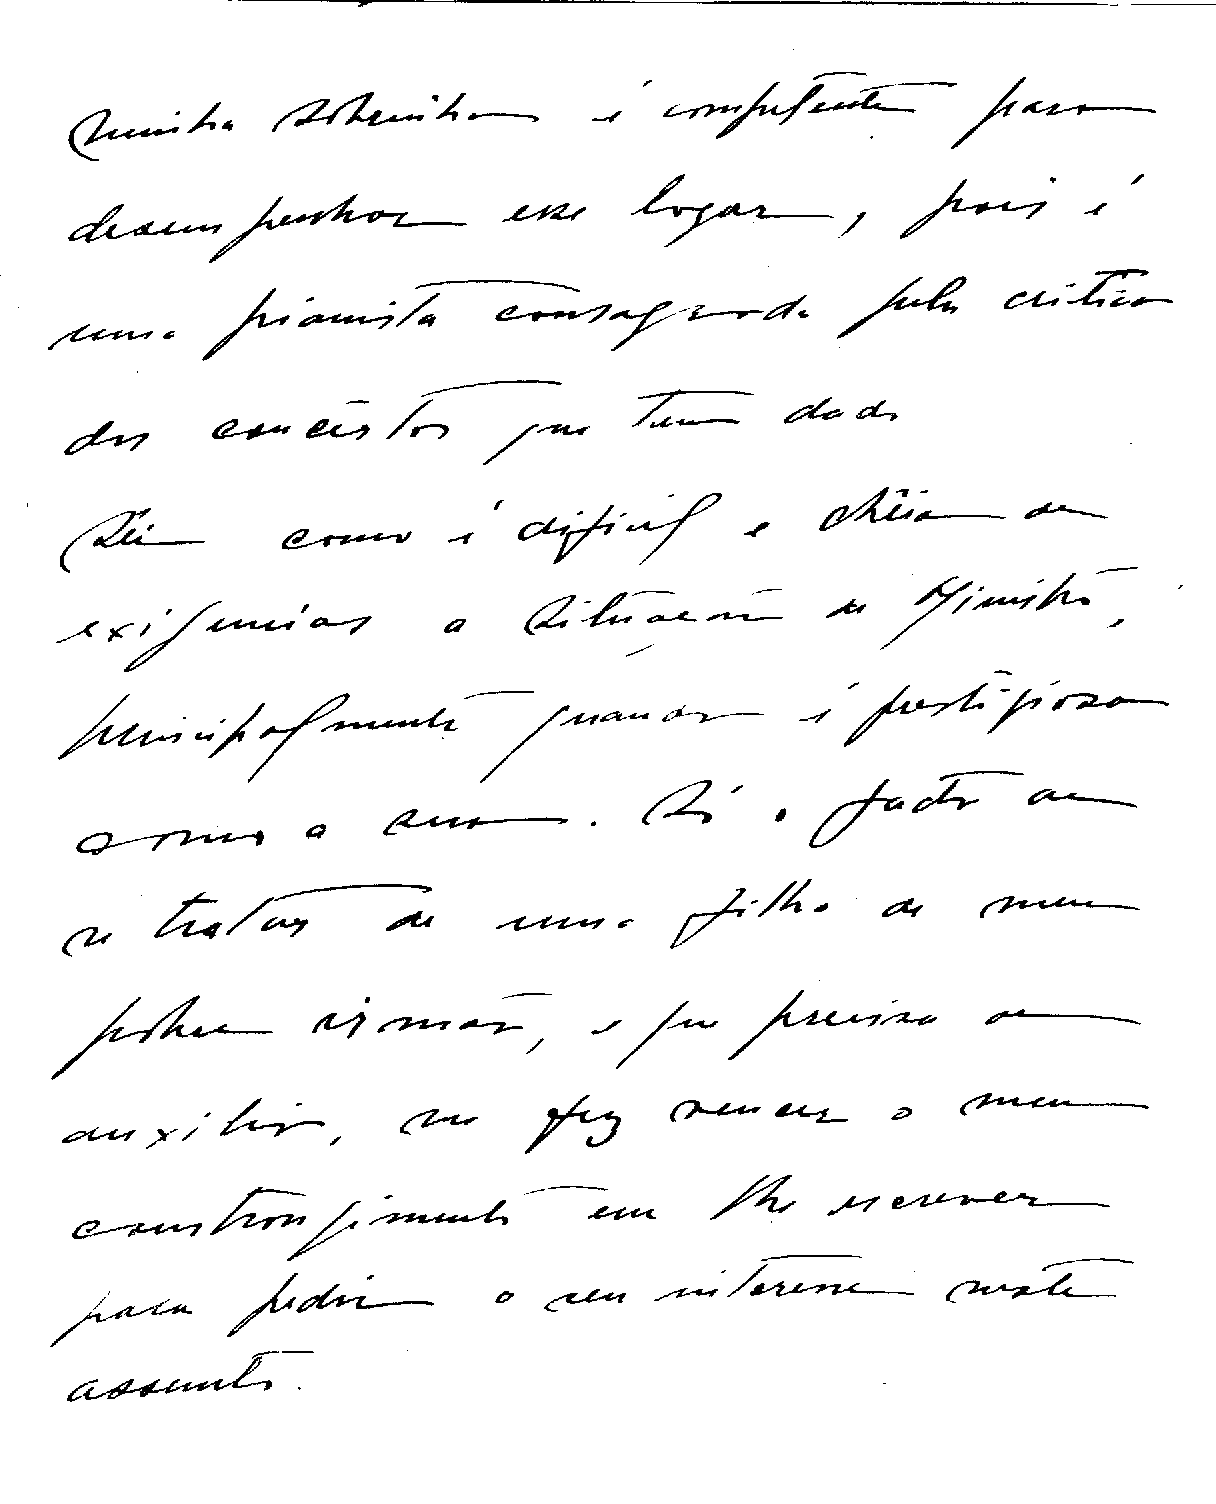 minha sobrinha é competente para
desempenhar esse logar, pois é
uma pianista consagrada pela critica
dos concêrtos que tem dado
Sei como é dificil e chêia de
exigencias a situação de Ministro,
principalmente quando é prestigiosa
como a sua. Só o facto de
se tratar de uma filha de meu
pobre irmão, e que precisa de
auxilio, me fez vencer o meu
constrangimento em lhe escrever
para pedir o seu interesse neste
assunto.